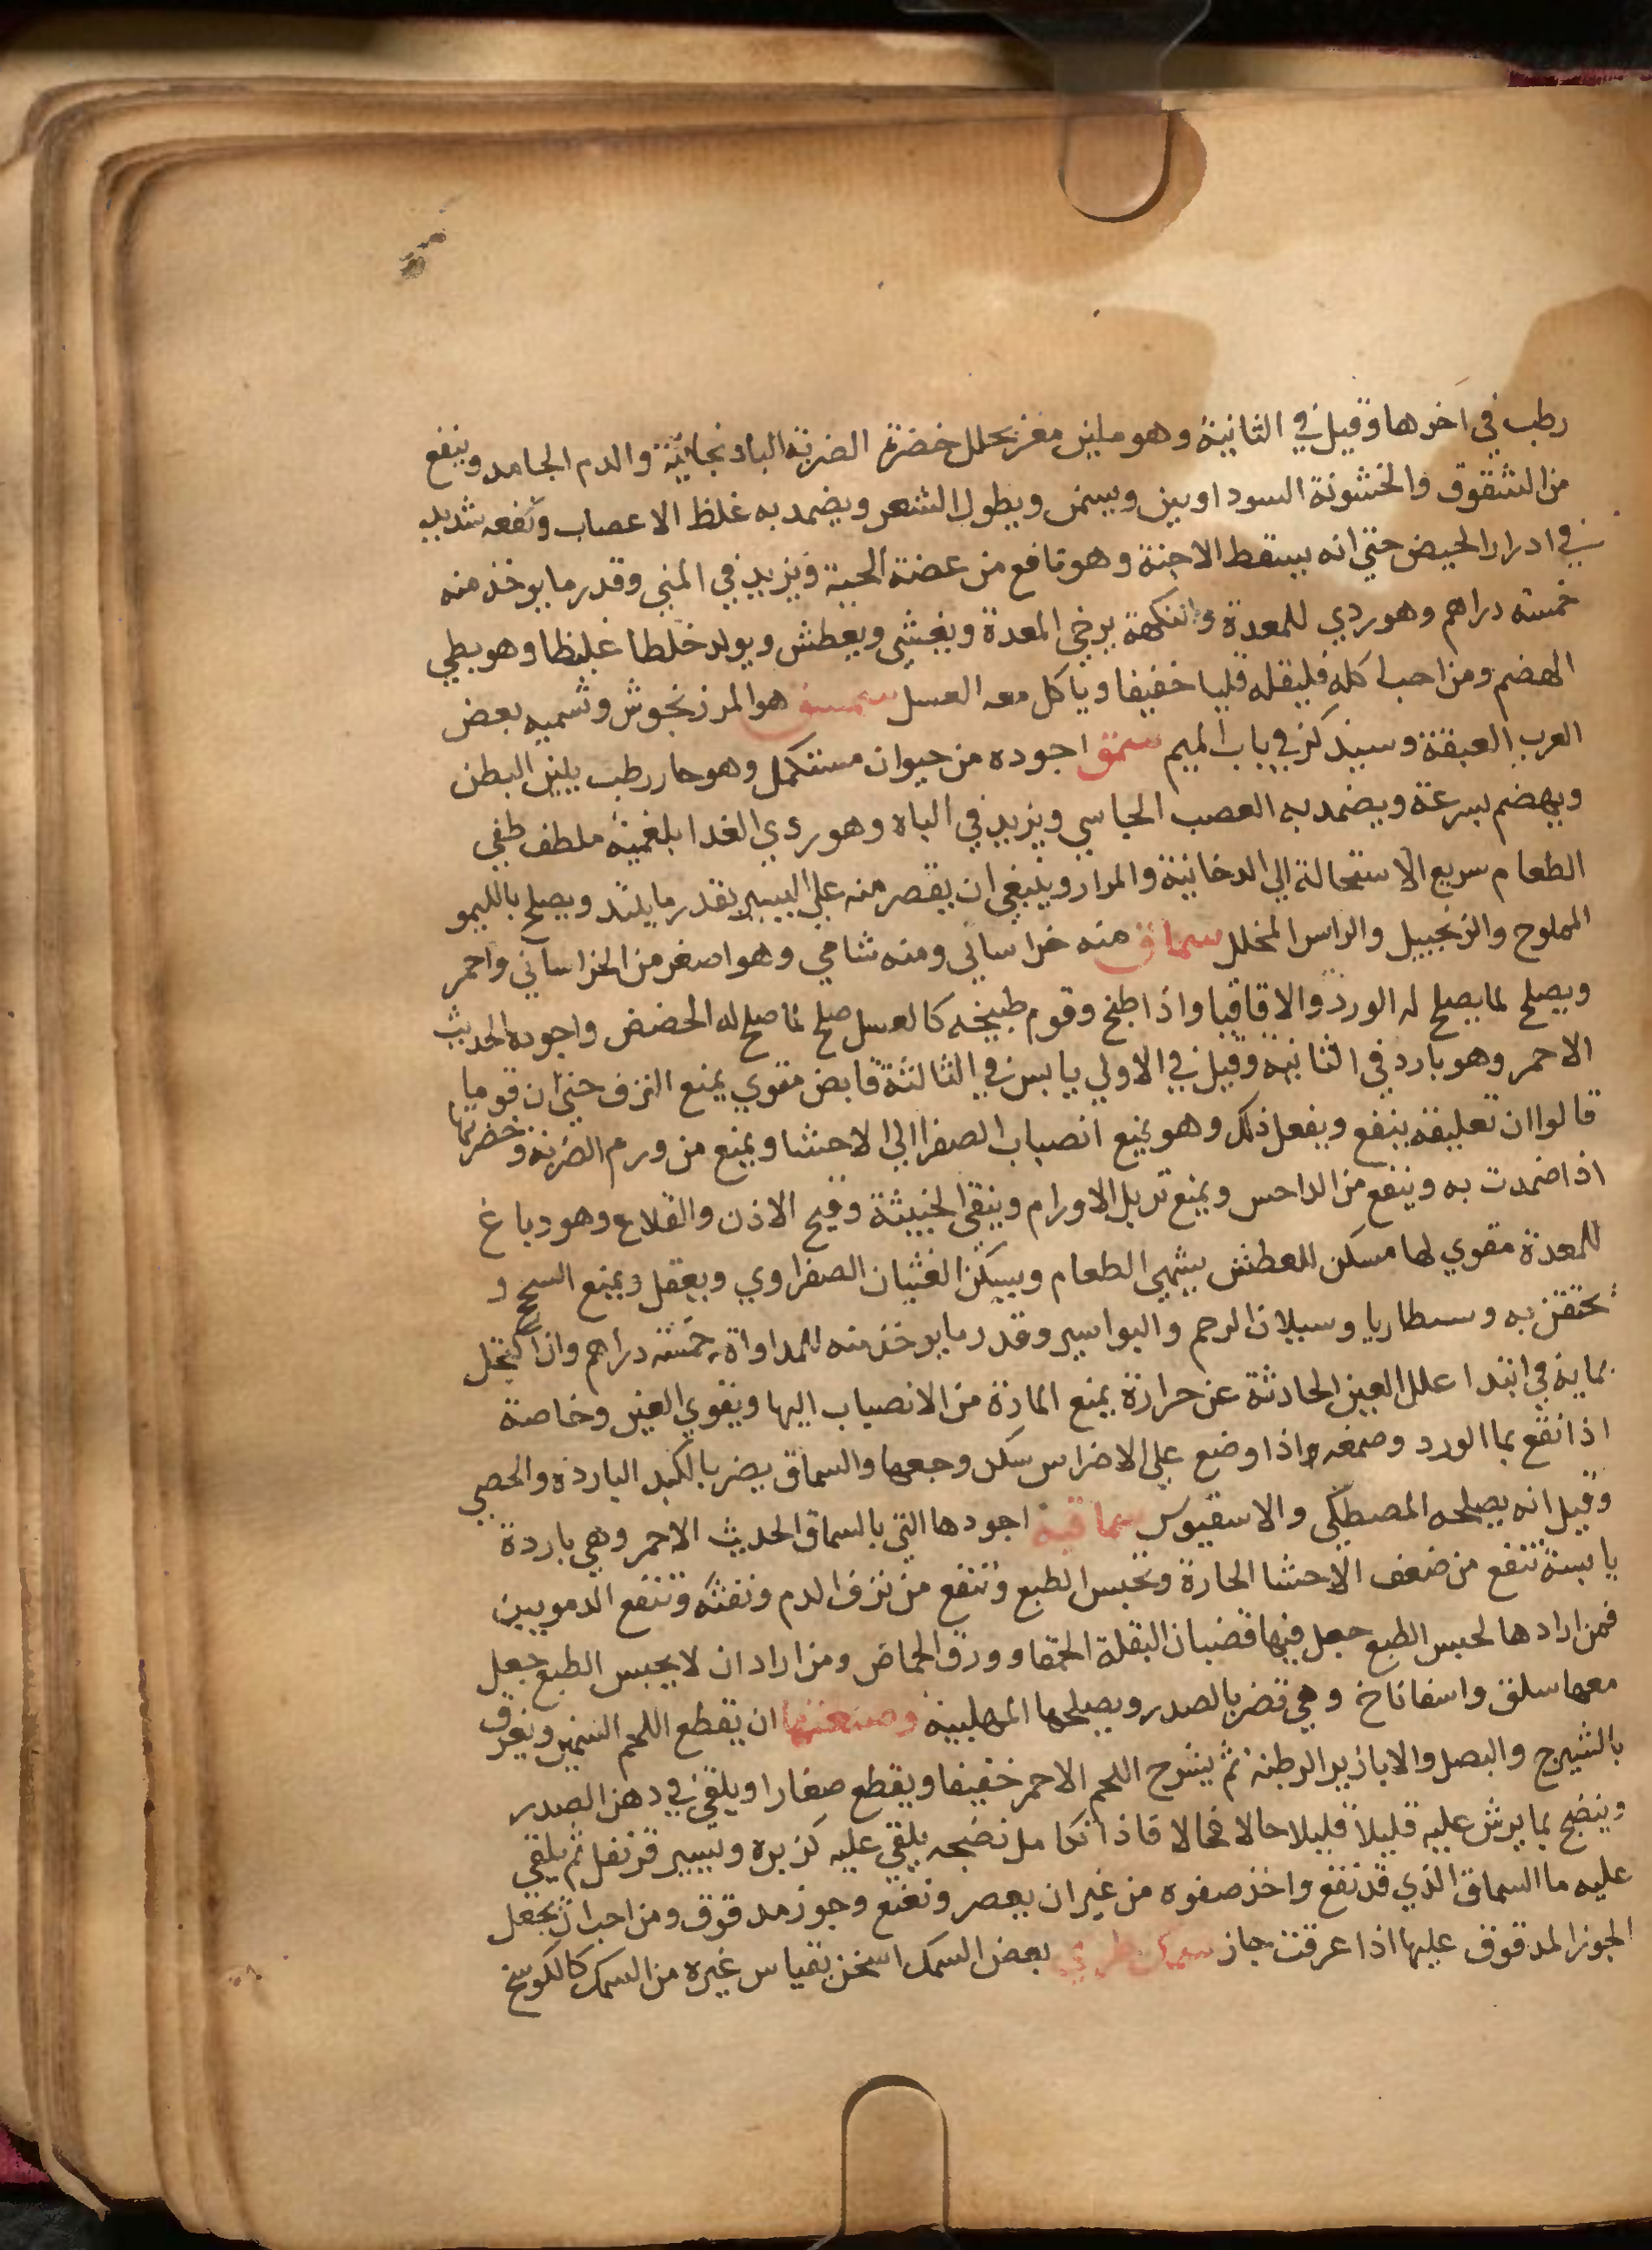 رطب في اخرها وقيل في الثانية وهو ملين مغز يحلل خضرة الضربة الباذنجانية والدم الجامد وينفع
من الشقوق والخشونة السوداويين ويسمن ويطول الشعر ويضمد به غلظ الاعصاب ونفعه شديد
في ادرار الحيض حتي انه يسقط الاجنة وهو نافع من عضة الحية ويزيد في المني وقدر ما يوخذ منه
خمسة دراهم وهو ردي للمعدة والنكهة يرخي المعدة ويغثي ويعطش ويولد خلطا غليظا وهو بطي
الهضم ومن احب اكله فليقله قليا خفيفا وياكل معه العسل سمسق هو المرزنجوش وتسميه بعض
العرب العبقة وسيذكر في باب الميم سمن اجوده من حيوان مستكمل وهو حار رطب يلين البطن
ويهضم بسرعة ويضمد به العصب الجاسي ويزيد في الباه وهو ردي الغدا بلغمية ملطف طفي
الطعام سريع الاستحالة الي الدخانية والمرار وينبغي ان يقصر منه علي اليسير بقدر ما يلتد ويصلح بالليمو
المملوح والزنجبيل والراس المخلل سماق منه خراساني ومنه شامي وهو اصغر من الخراساني واحمر
ويصلح لما يصلح له الورد والاقاقيا واذا طبخ وقوم طبيخه كالعسل صلح لما صلح له الحضض واجوده الحديث
الاحمر وهو بارد في الثانية وقيل في الاولي يابس في الثالثة قابض مقوي يمنع النزف حتي ان قوما
قالوا ان تعليقه ينفع ويفعل ذلك وهو يمنع انصباب الصفرا الي الاحشا ويمنع من ورم الضربة وخضرتها
اذا ضمدت به وينفع من الداحس ويمنع تربل الاورام وينقي الخبيثة وقيح الاذن والقلاع وهو دباغ
للمعدة مقوي لها مسكن للعطش يشهي الطعام ويسكن الغثيان الصفراوي ويعقل ويمنع السحج و
يحتقن به وسطاريا وسيلان الرحم والبواسير وقدر ما يوخذ منه للمداواة خمسة دراهم واذا اكتحل
بمايه في ابتدا علل العين الحادثة عن حرارة يمنع المادة من الانصباب اليها ويقوي العين وخاصة
اذا نقع بما الورد وصمغه اذا وضع علي الاضراس سكن وجعها والسماق يضر بالكبد الباردة والحصي
وقيل انه يصلحه المصطكي والاسقيوس سماقية اجودها التي بالسماق الحديث الاحمر وهي باردة
يابسة تنفع من ضعف الاحشا الحارة وتحبس الطبع وتنفع من نزف الدم ونفثه وتنفع الدمويين
فمن ارادها لحبس الطبع جعل فيها قضبان البقلة الحمقا وورق الحماض ومن اراد ان لا يحبس الطبع جعل
معها سلق واسفاناخ وهي تضر بالصدر ويصلحها المهلبية وصنعتها ان يقطع اللحم السمين ويغرق
بالشيرج والبصل والابازير الرطبة ثم يشرح اللحم الاحمر خفيفا ويقطع صغارا ويلقي في دهن الصدر
وينضج بما يرش عليه قليلا قليلا حالا فحالا فاذا تكامل نضجه يلقي عليه كزبره ويسير قرنفل ثم يلقي
عليه ما السماق الذي قد نقع واخذ صفوه من غير ان يعصر ونعنع وجوز مدقوق ومن احب ان يجعل
الجوز المدقوق عليها اذا عرقت جاز سمك طري بعض السمك اسخن بقياس غيره من السمك كالكوسج